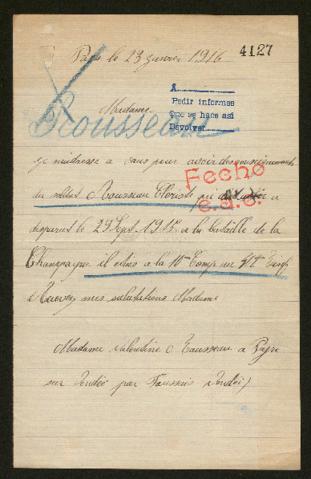 4127
le 23 janvier 1916
A
Pedir informes
Que se hace así
Devolver
Madame
Rousseau
je maitresse a vous pour avoir des renseignements
du soldat Rousseau
Fecho
disparut le 29 Sept 1915 a la bataille de la
Champagne il était a la 10me Comp
Recevez mes salutations Madame
Madame Valentine Rousseau a
sur Vendée par Vendée